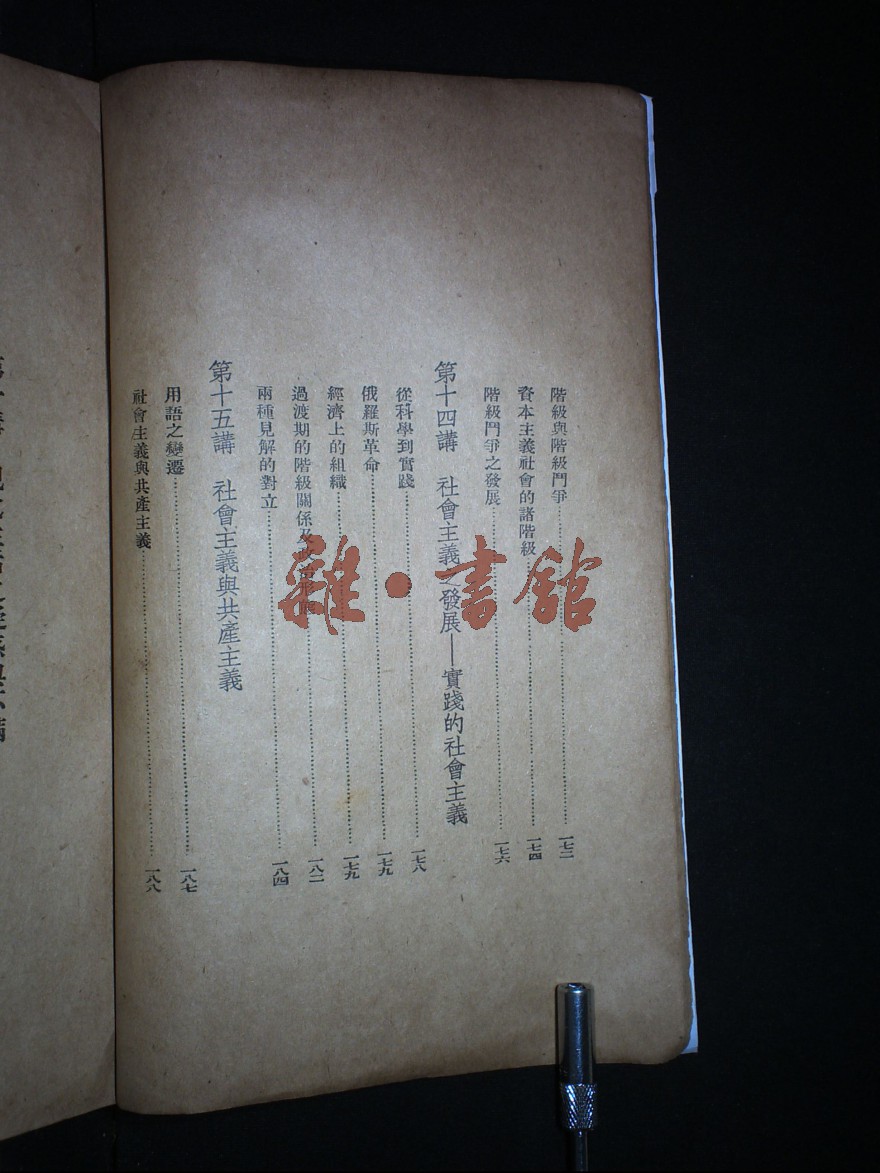 階級與階級鬥爭 一七二
資本主義社會的諸階級 一七四
階級鬥爭之發展 一七六
第十四講 社會主義之發展——實踐的社會主義
從科學到實踐 一七八
俄羅斯革命 一七九
經濟上的組織 一七九
過渡期的階級關係及政治形態 一八二
兩種見解的對立 一八四
第十五講 社會主義與共產主義
用語之變遷 一八七
社會主義與共產主義 一八八
雜·書館